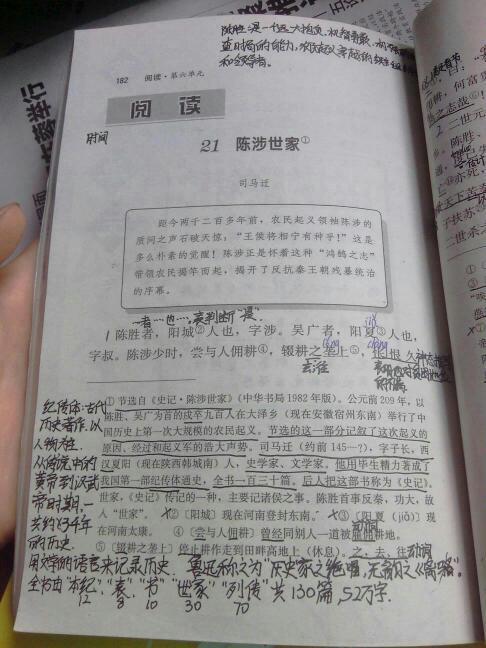 陈胜是一个远大抱负
和领导者。
182 阅读·第六单元
阅读
时间
21 陈涉世家①
司马迁
距今两千二百多年前，农民起义领袖陈涉的
质问之声石破天惊：“王侯将相宁有种乎！”这是
多么朴素的觉醒！陈涉正是怀着这种“鸿鹄之志”
带领农民揭竿而起，揭开了反抗秦王朝残暴统治
的序幕。
者 也 表判断“是”
1 陈胜者，阳城②人也，字涉。吴广者，阳夏③人也，
字叔。陈涉少时，尝与人佣耕④，辍耕之垄上⑤，怅恨久
去往
①节选自《史记·陈涉世家》(中华书局1982年版)。公元前209年，以
陈胜、吴广为首的戍卒九百人在大泽乡（现在安徽宿州东南）举行了中
国历史上第一次大规模的农民起义。节选的这一部分记叙了这次起义的
原因、经过和起义军的浩大声势。司马迁（约前145—？），字子长，西
汉夏阳（现在陕西韩城南）人，史学家、文学家。他用毕生精力著成了
我国第一部纪传体通史，全书一百三十篇。后人把这部书称为《史记》。
世家，《史记》传记的一种，主要记诸侯之事。陈胜首事反秦，功大，故
入“世家”。 ②〔阳城〕现在河南登封东南。 ③〔阳夏（jiǎ）〕现
在河南太康。 ④〔尝与人佣耕〕曾经同别人一道被雇佣耕地。
⑤〔辍耕之垄上〕停止耕作走到田畔高地上（休息）。之，去、往 动词
纪传体:古代
历史著作，以
人物为主
从传说中的
黄帝到汉武
帝时期，一
共约3千年
的历史
用文学的语言来记录历史。 鲁迅称之为“历史家之绝唱，无韵之《离骚》”。
全书由“本纪”、“表”、“书”“世家”“列传”共130篇，52万字.
12 8 10 30 70